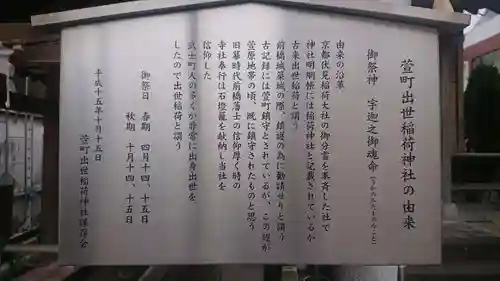 萱町出世稲荷神社の由来
御祭神　宇迦之御魂命（うかのみたまのみこと）
由来の沿革
京都伏見稲荷大社の御分霊を奉斎した社で
神社明細帳には稲荷神社と記されているが
古来出世稲荷と謂う
前橋城築城の際、鎮護の為に勧請せりと謂う
古記録には萱町鎮守とされているが、この辺が
萱原地帯の頃、既に鎮守されたものと思う
旧幕時代前橋藩士の信仰厚く時の
寺社奉行は石燈籠を奉納し当社を
信仰した
武士町人の多くが非常に出身出世を
したので出世稲荷と謂う
御祭日　春期　四月十四、十五日
秋期　十月十四、十五日
平成十五年十月十五日
萱町出世稲荷神社保存会